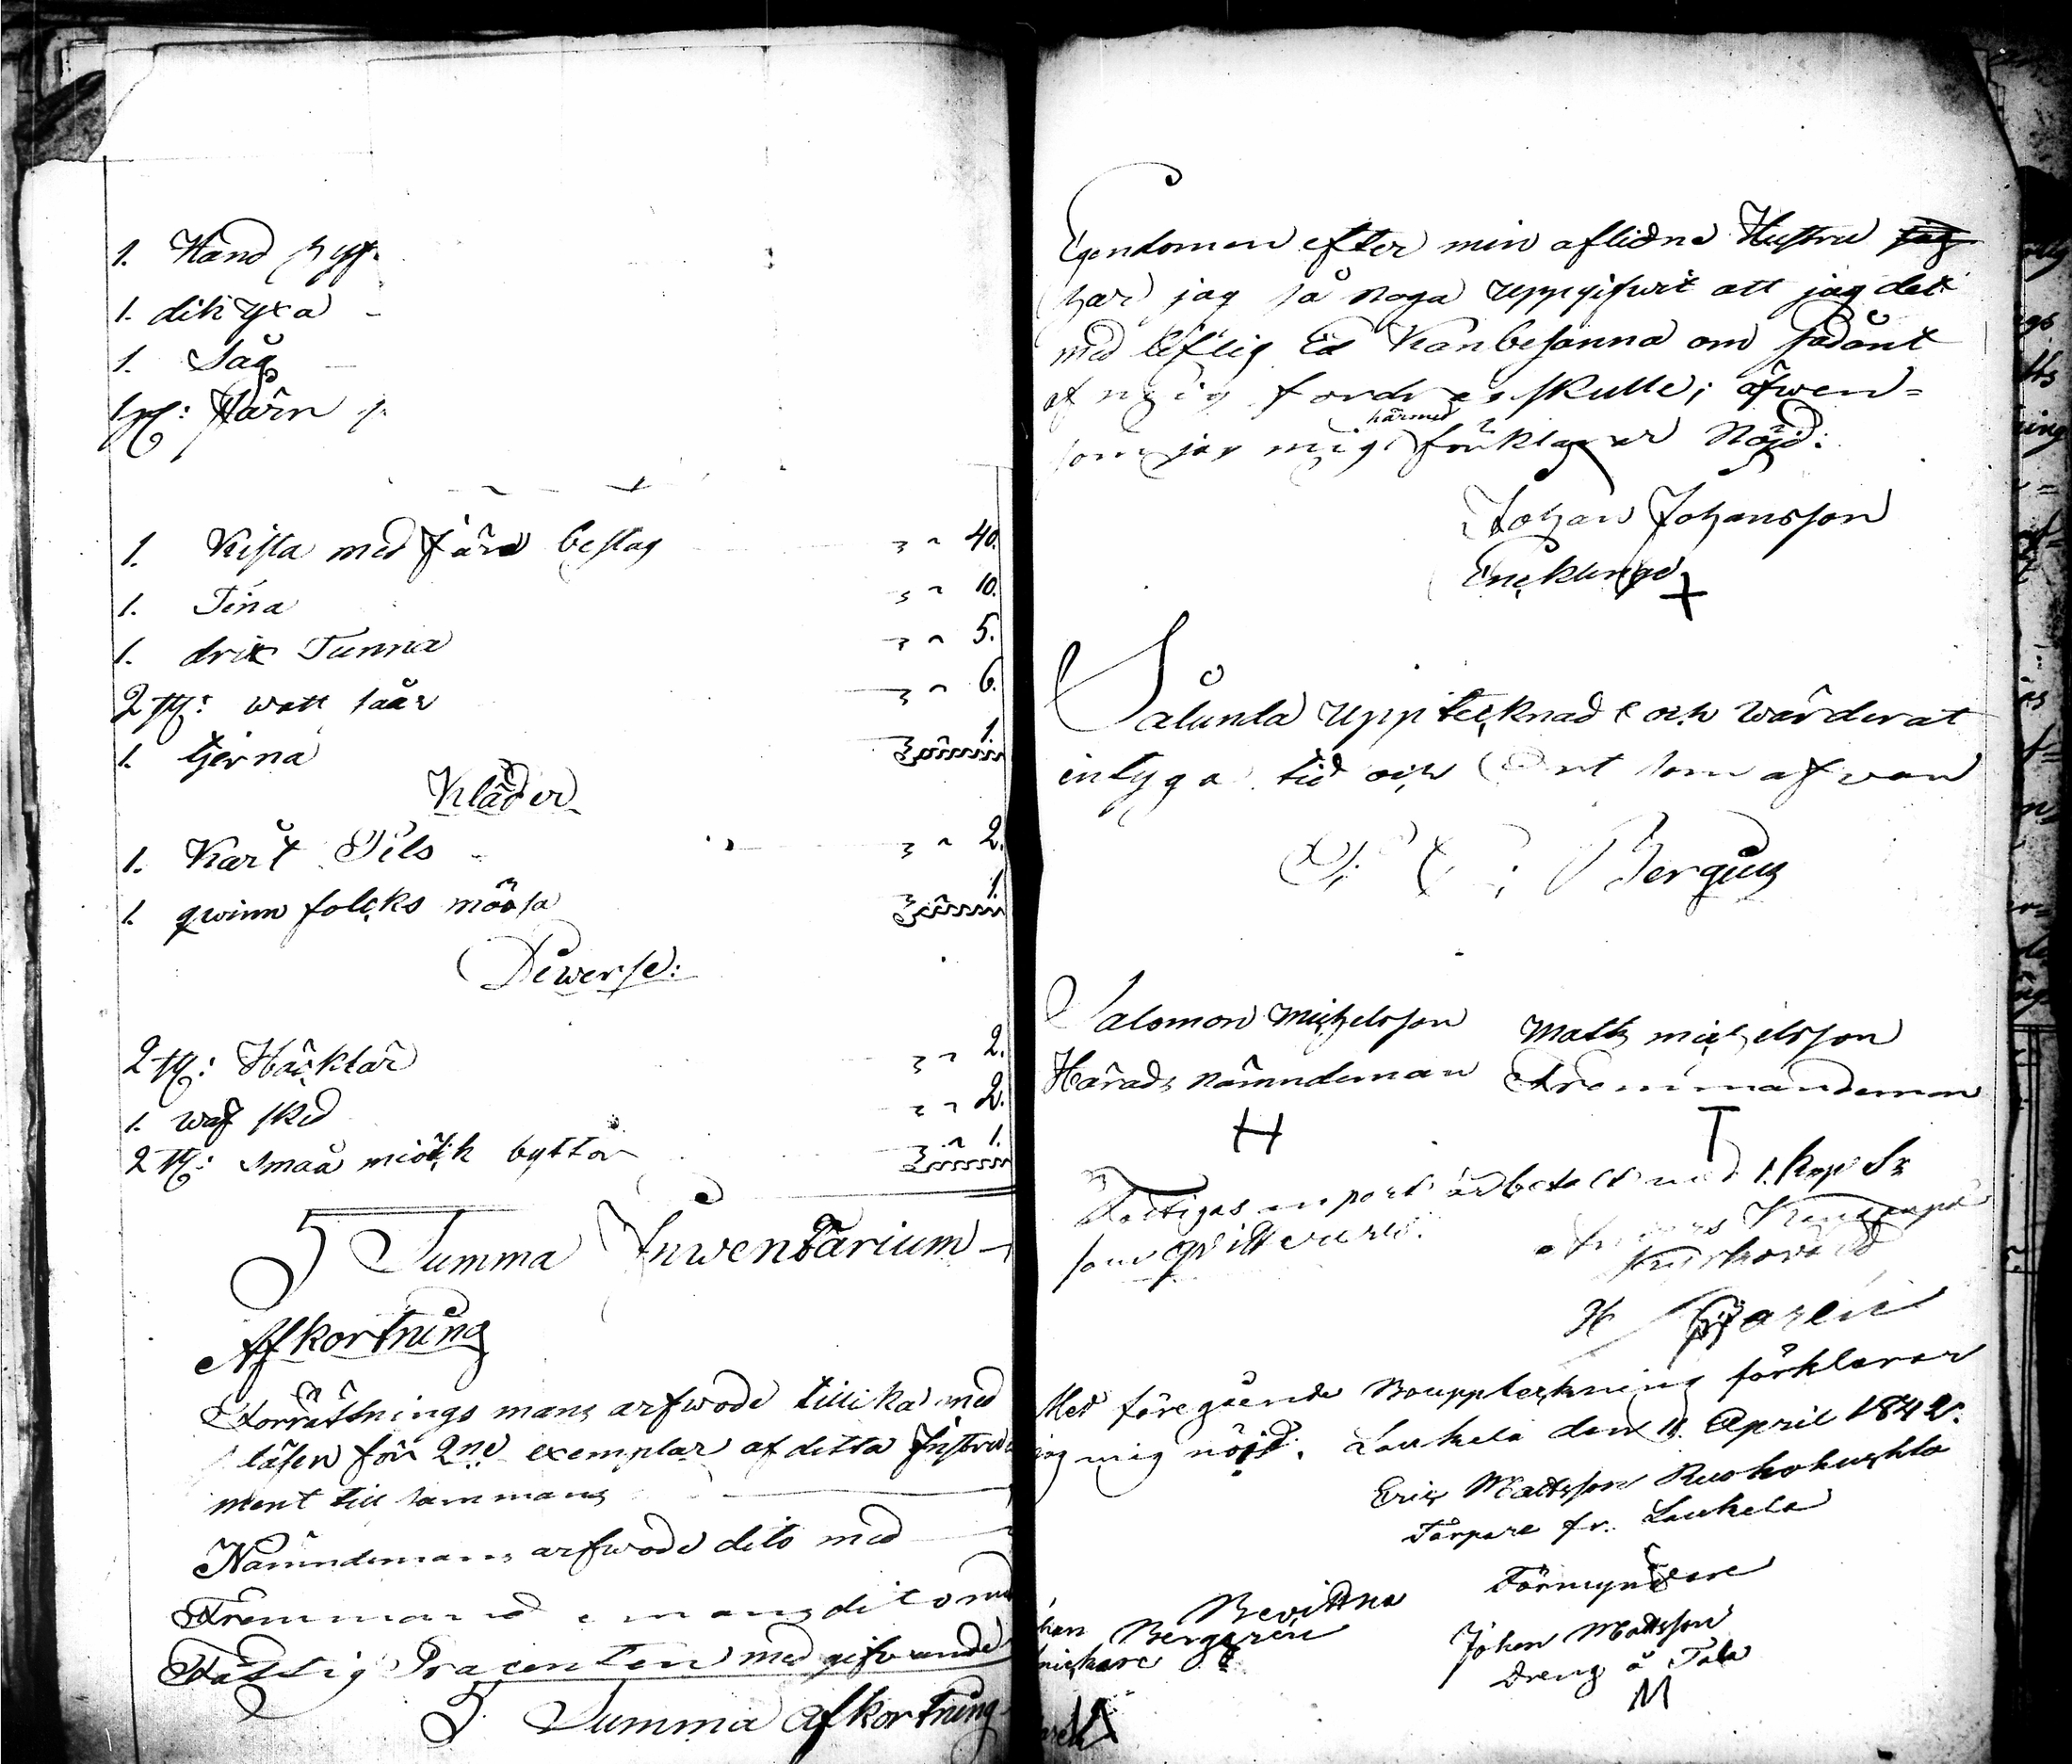 1. Hand
1. dik yxa
1. Såg
1 st: Järn
1. Kista med Järn beslag 40.
1. Tina 10.
1. drix Tunna 5.
2 st: watt såår 6.
1. tjerna 1.
Kläder
1. Kart Pils 2.
1. qwinn folcks möösa 1.
Diwerse:
2 st: Häcklar 2.
1. waf sked 2.
2 st: småå miölk byttor 1.
Summa Inwentarium
Afkortning
Förrättnings mans arfwode tillika med
lösen för 2ne exemplar af detta Instru
ment till sammans
Nämndemans arfwode dito med
Fremmande mans dito med
Fattig Procenten med gifwande
Summa afkortning
Egendomen efter min aflidna Hustru
har jag så noga uppgifwit att jag det
med liflig Ed kan besanna om sådant
af mig fordras skulle; äfwen-
som jag mig härmed förklarar Nöjd:
Johan Johansson
Enckling
Sålunda upptecknade och wärderat
intyga tid och Ort som afwan
Bergius
Salomon Michelsson Matts Michelsson
Härads nämndeman Fremmandeman
H T
Fattigas an part är betalt med 1. kop Sr
som qvitteras.
H
Med föregående Bouppteckning förklarar
jag mig nöjd. Laukela den 11 April 1842.
Eric Mattsson Ruohokuckla
Torpare fr. Laukela
Förmyndare
Bevittna
Berggrén
Johan Mattsson
Dreng å Tala
M